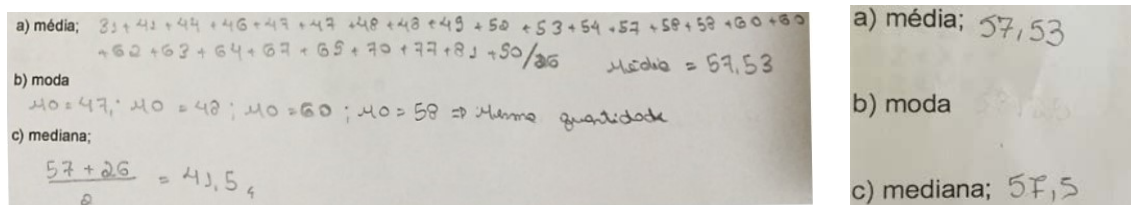 a) média; 31+41+44+46+47+47+48+48+49+50+53+54+57+58+58+60+60
+62+63+64+67+69+70+77+81+90/26 Média = 57,53
b) moda
MO = 47; MO = 48; MO = 60; MO = 58 ⇒ Mesma quantidade
c) mediana;
57 + 26 / 2 = 41,5
a) média; 57,53
b) moda
c) mediana; 57,5